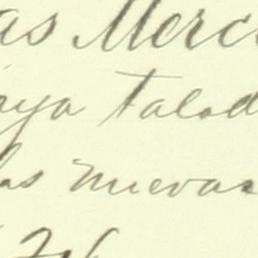 as Merc
aya Talad
las nuevas
26